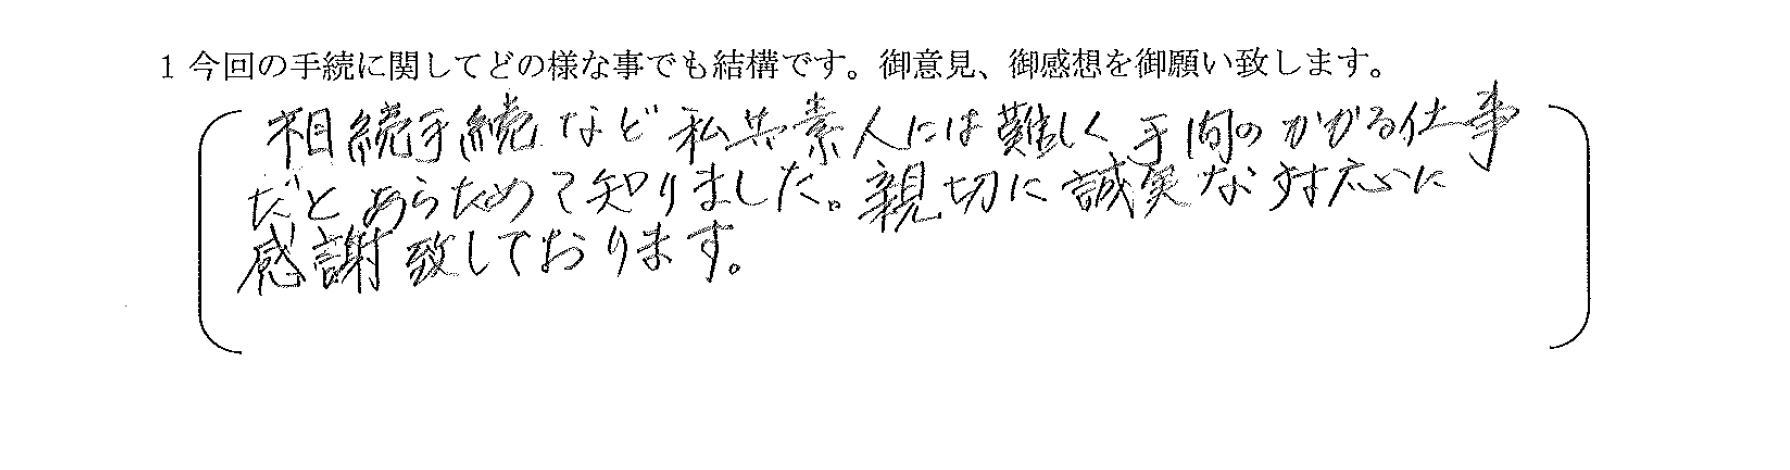 1 今回の手続に関してどの様な事でも結構です。御意見、御感想を御願い致します。
相続手続など私共素人には難しく手間のかかる仕事
だとあらためて知りました。親切に誠実な対応に
感謝致しております。